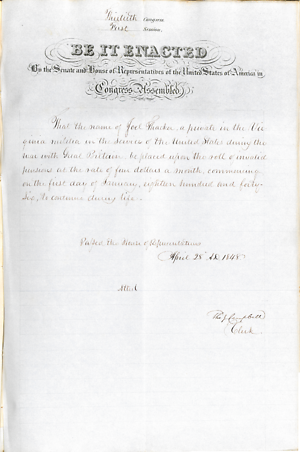 Thirtieth Congress
First Session,
BE IT ENACTED
By the Senate and House of Representatives of the United States of America in
Congress Assembled,
That the name of Joel Thacker, a private in the Vir
ginia militia in the service of the United States during the
war with Great Britain, be placed upon the roll of invalid
pensions at the rate of four dollars a month, commencing
on the first day of January, eighteen hundred and forty-
six, to continue during life.
Passed the House of Representatives
April 28 1848.
Attest
Tho J Campbell
Clerk.